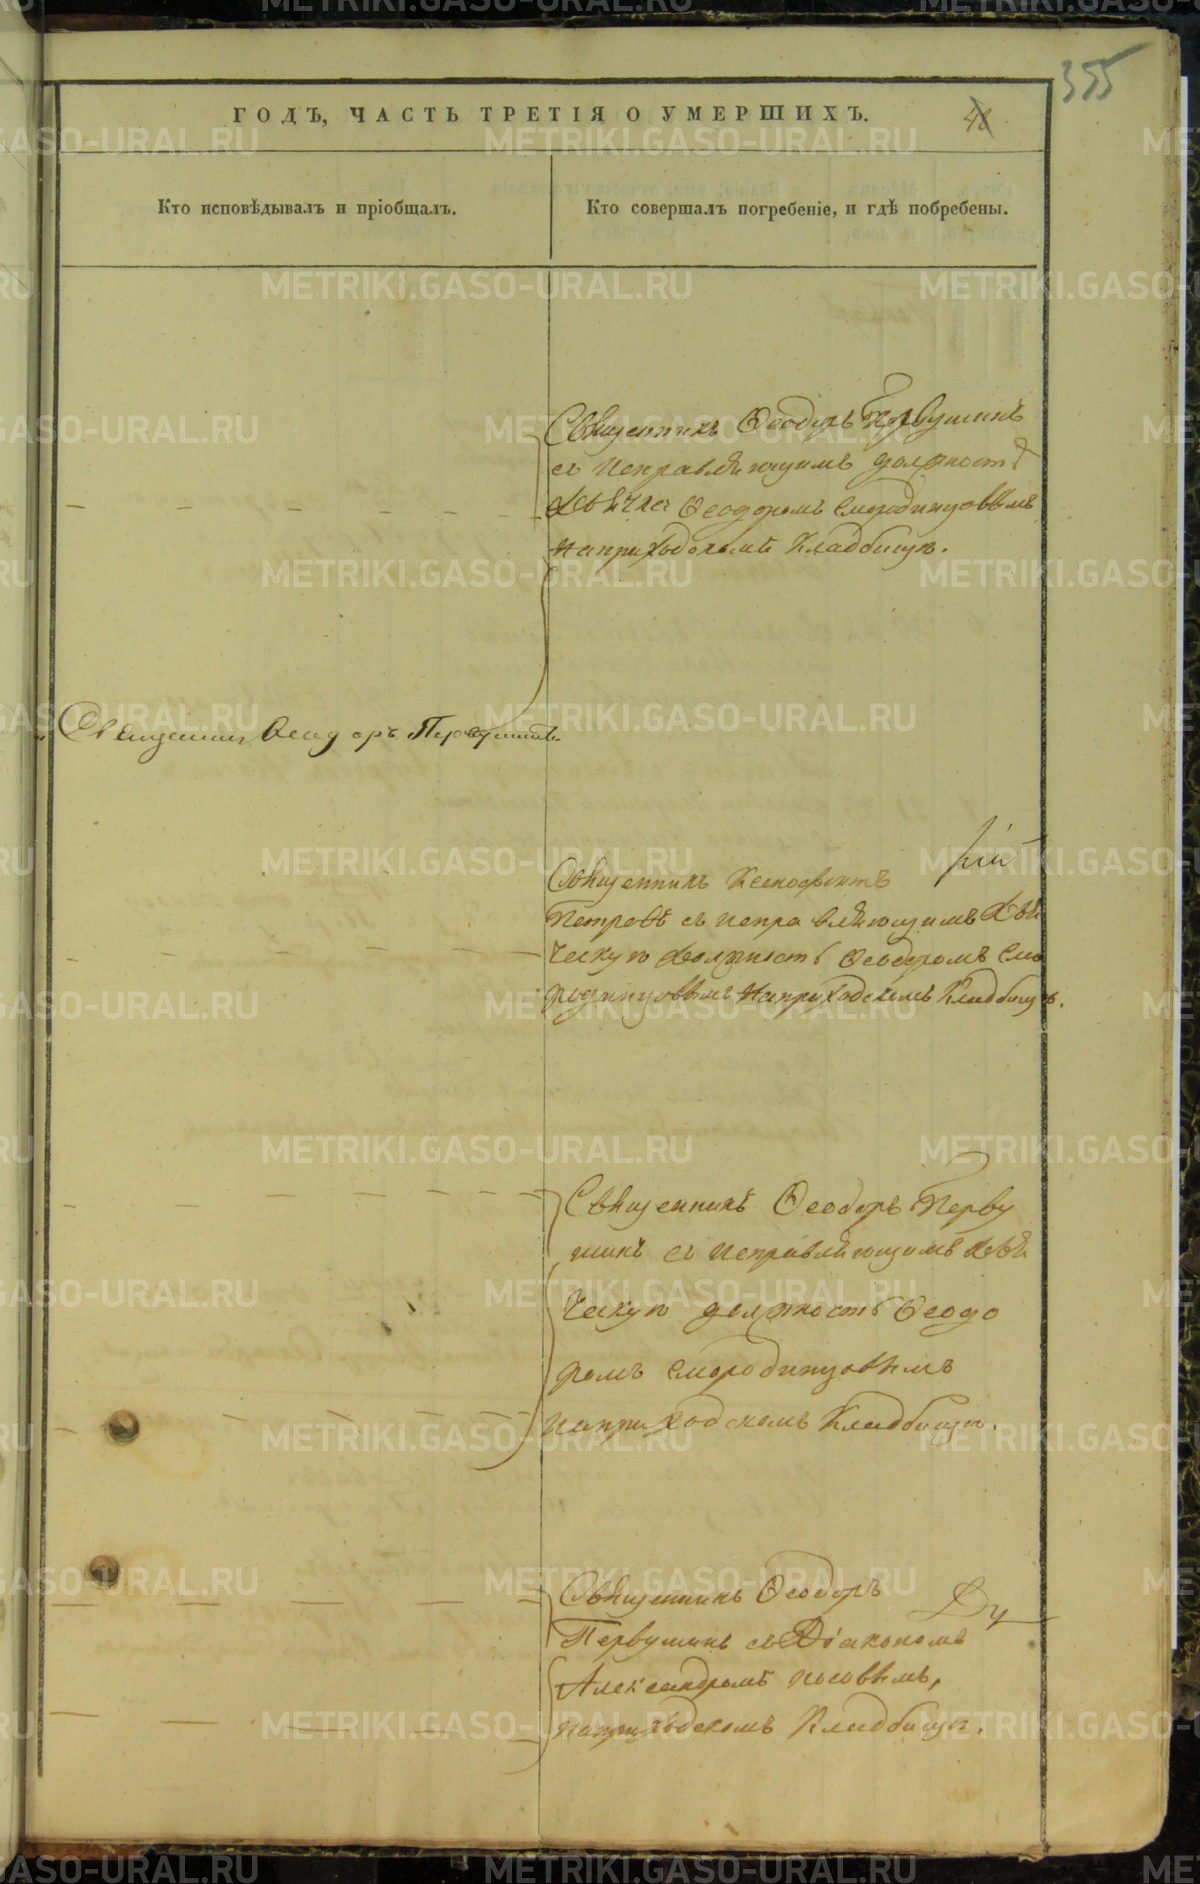 355
ГОДЪ, ЧАСТЬ ТРЕТІЯ О УМЕРШИХЪ.
48
Кто исповѣдывалъ и пріобщалъ.
Кто совершалъ погребеніе, и гдѣ побребены.
Священникъ Ѳеодоръ Первушинъ
съ исправляющимъ должность
дьячка Ѳеодоромъ Смородинцовымъ
на приходскомъ кладбищѣ.
Священникъ Ѳеодоръ Первушинъ.
Священникъ Ксенофонтъ
Петровъ съ исправляющимъ дья
ческую должность Ѳеодоромъ Смо
родинцовымъ на приходскомъ кладбищѣ.
Священникъ Ѳеодоръ Перву
шинъ съ исправляющимъ дья
ческую должность Ѳеодо
ромъ Смородинцовымъ
на приходскомъ кладбищѣ.
Священникъ Ѳеодоръ
Первушинъ съ Діакономъ
Александромъ Носовымъ,
на приходскомъ кладбищѣ.
METRIKI.GASO-URAL.RU